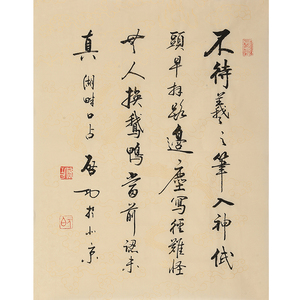 不待羲之筆入神低
頭早拜路邊塵寫經難怪
無人換鵝鴨當前認未
真 湖畔口占 啓功於北京